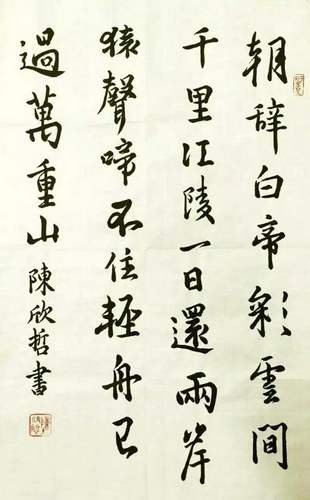 朝辭白帝彩雲間
千里江陵一日還兩岸
猿聲啼不住輕舟已
過萬重山 陳欣哲書